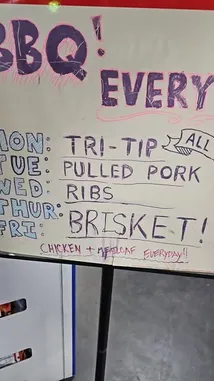 BBQ!
EVERY
MON: TRI-TIP ALL
TUE: PULLED PORK
WED: RIBS
THUR:
FRI: BRISKET!
CHICKEN + MEATLOAF EVERYDAY!!